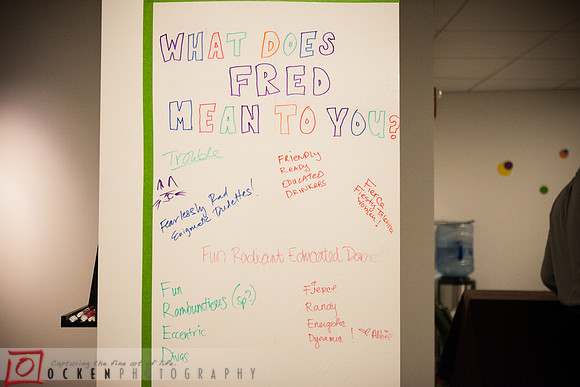 WHAT DOES
FRED
MEAN TO YOU?
Trouble
FRIENDLY
READY
EDUCATED
DRINKERS
Fearlessly Rad
Enigmatic Dudettes!
Fierce
Feisty
Women!
Fun Radiant Educated
Fun
Rambunctious (sp?)
Eccentric
Divas
Fierce
Randy
Energetic
Dynamic !
Abbie
Capturing the fine art of life.
OCKENPHOTOGRAPHY